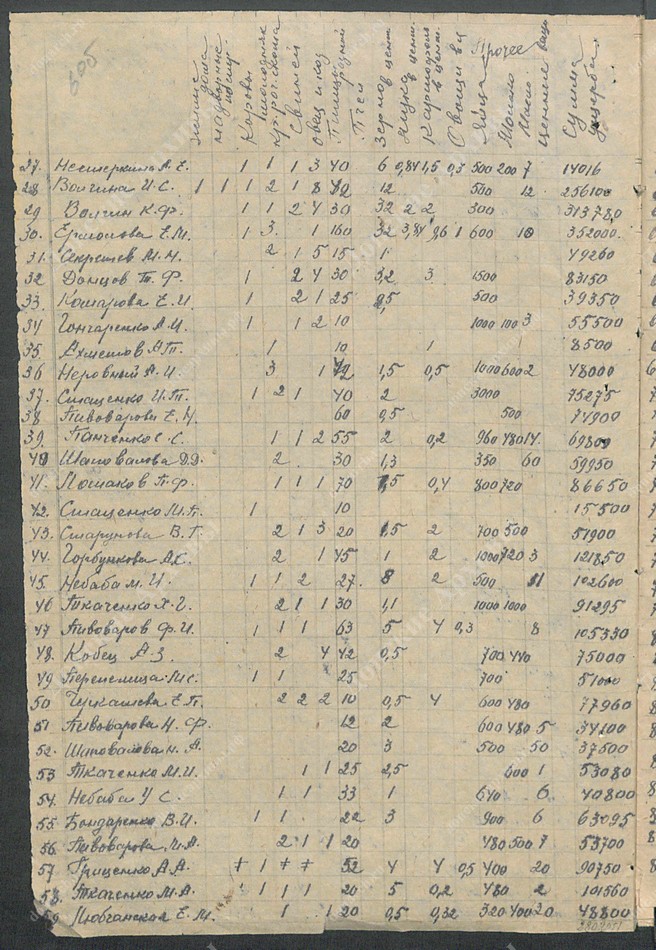 жилые дома
надворные
Коровы
Свиней
Овец и коз
Птицы разной
Пчел
Зерно в цент.
Мука в цент.
Картофель в цент.
Овощи в ц
Прочее
Яйца
Молоко
Масло
ценные вещи
Сумма ущерба
27. Нестеркина А. Е. 1 1 1 3 40 6 0,84 1,5 0,3 500 200 7 14016
28 Волгина И. С. 1 1 1 2 1 8 12 500 12 256100
29 Волгин К. Ф. 1 1 2 4 30 32 2 2 300 313780
30. Ермолова Е. М. 1 3 1 160 32 96 1 600 10 352000
31. Секретев М. Н. 2 1 5 15 1 49260
32 Донцов Т. Ф. 1 2 4 30 3,2 3 1500 83150
33. Кошарова Е. И. 1 2 1 25 500 39350
34 Гончаренко А. И. 1 1 2 10 1000 100 3 55500
35. Ахметов А. П. 1 10 1 8500
36 Неровный А. И. 3 1 1,5 0,5 1000 600 2 48000
37. Стаценко И. П. 1 2 1 40 2 3000 75275
38 Пивоварова Е. Н. 60 0,5 500 74900
39. Панченко С. С. 1 1 2 55 2 0,2 960 480 14 69800
40 Шаповалова Д. Д. 2 30 1,3 350 60 59950
41. Мошаков П. Ф. 1 1 1 70 1,5 0,4 800 720 86650
42. Стаценко М. П. 1 10 15500
43. Старунова В. Г. 2 1 3 20 1,5 2 700 500 51900
44. Горбункова А. С. 2 1 45 1 2 1000 720 3 121850
45. Небаба М. И. 1 1 2 27 8 2 500 11 102600
46 Ткаченко Х. Г. 2 1 1 30 1,1 1000 1000 91295
47 Пивоваров Ф. И. 1 1 1 63 5 4 0,3 8 105330
48. Кобец А. З. 2 4 42 0,5 700 440 75000
49 Перепелица М. С. 1 1 25 700 51000
50 Чукашева Е. П. 2 2 2 10 0,5 4 600 480 77960
51 Пивоварова Н. Ф. 12 2 600 480 5 34100
52. Шаповалова Н. А. 20 3 500 50 37500
53 Ткаченко М. И. 1 1 25 2,5 600 1 53080
54. Небаба У. С. 1 1 33 1 640 6 40800
55. Бондаренко В. И. 1 1 22 3 900 6 63095
56. Пивоварова М. А. 2 1 1 20 480 500 7 53700
57. Гриценко А. А. 1 52 4 4 0,5 400 20 90750
58. Ткаченко М. А. 1 1 1 1 20 5 0,2 480 2 101560
59. Любчанская Е. М. 1 1 20 0,5 0,32 320 400 20 48800